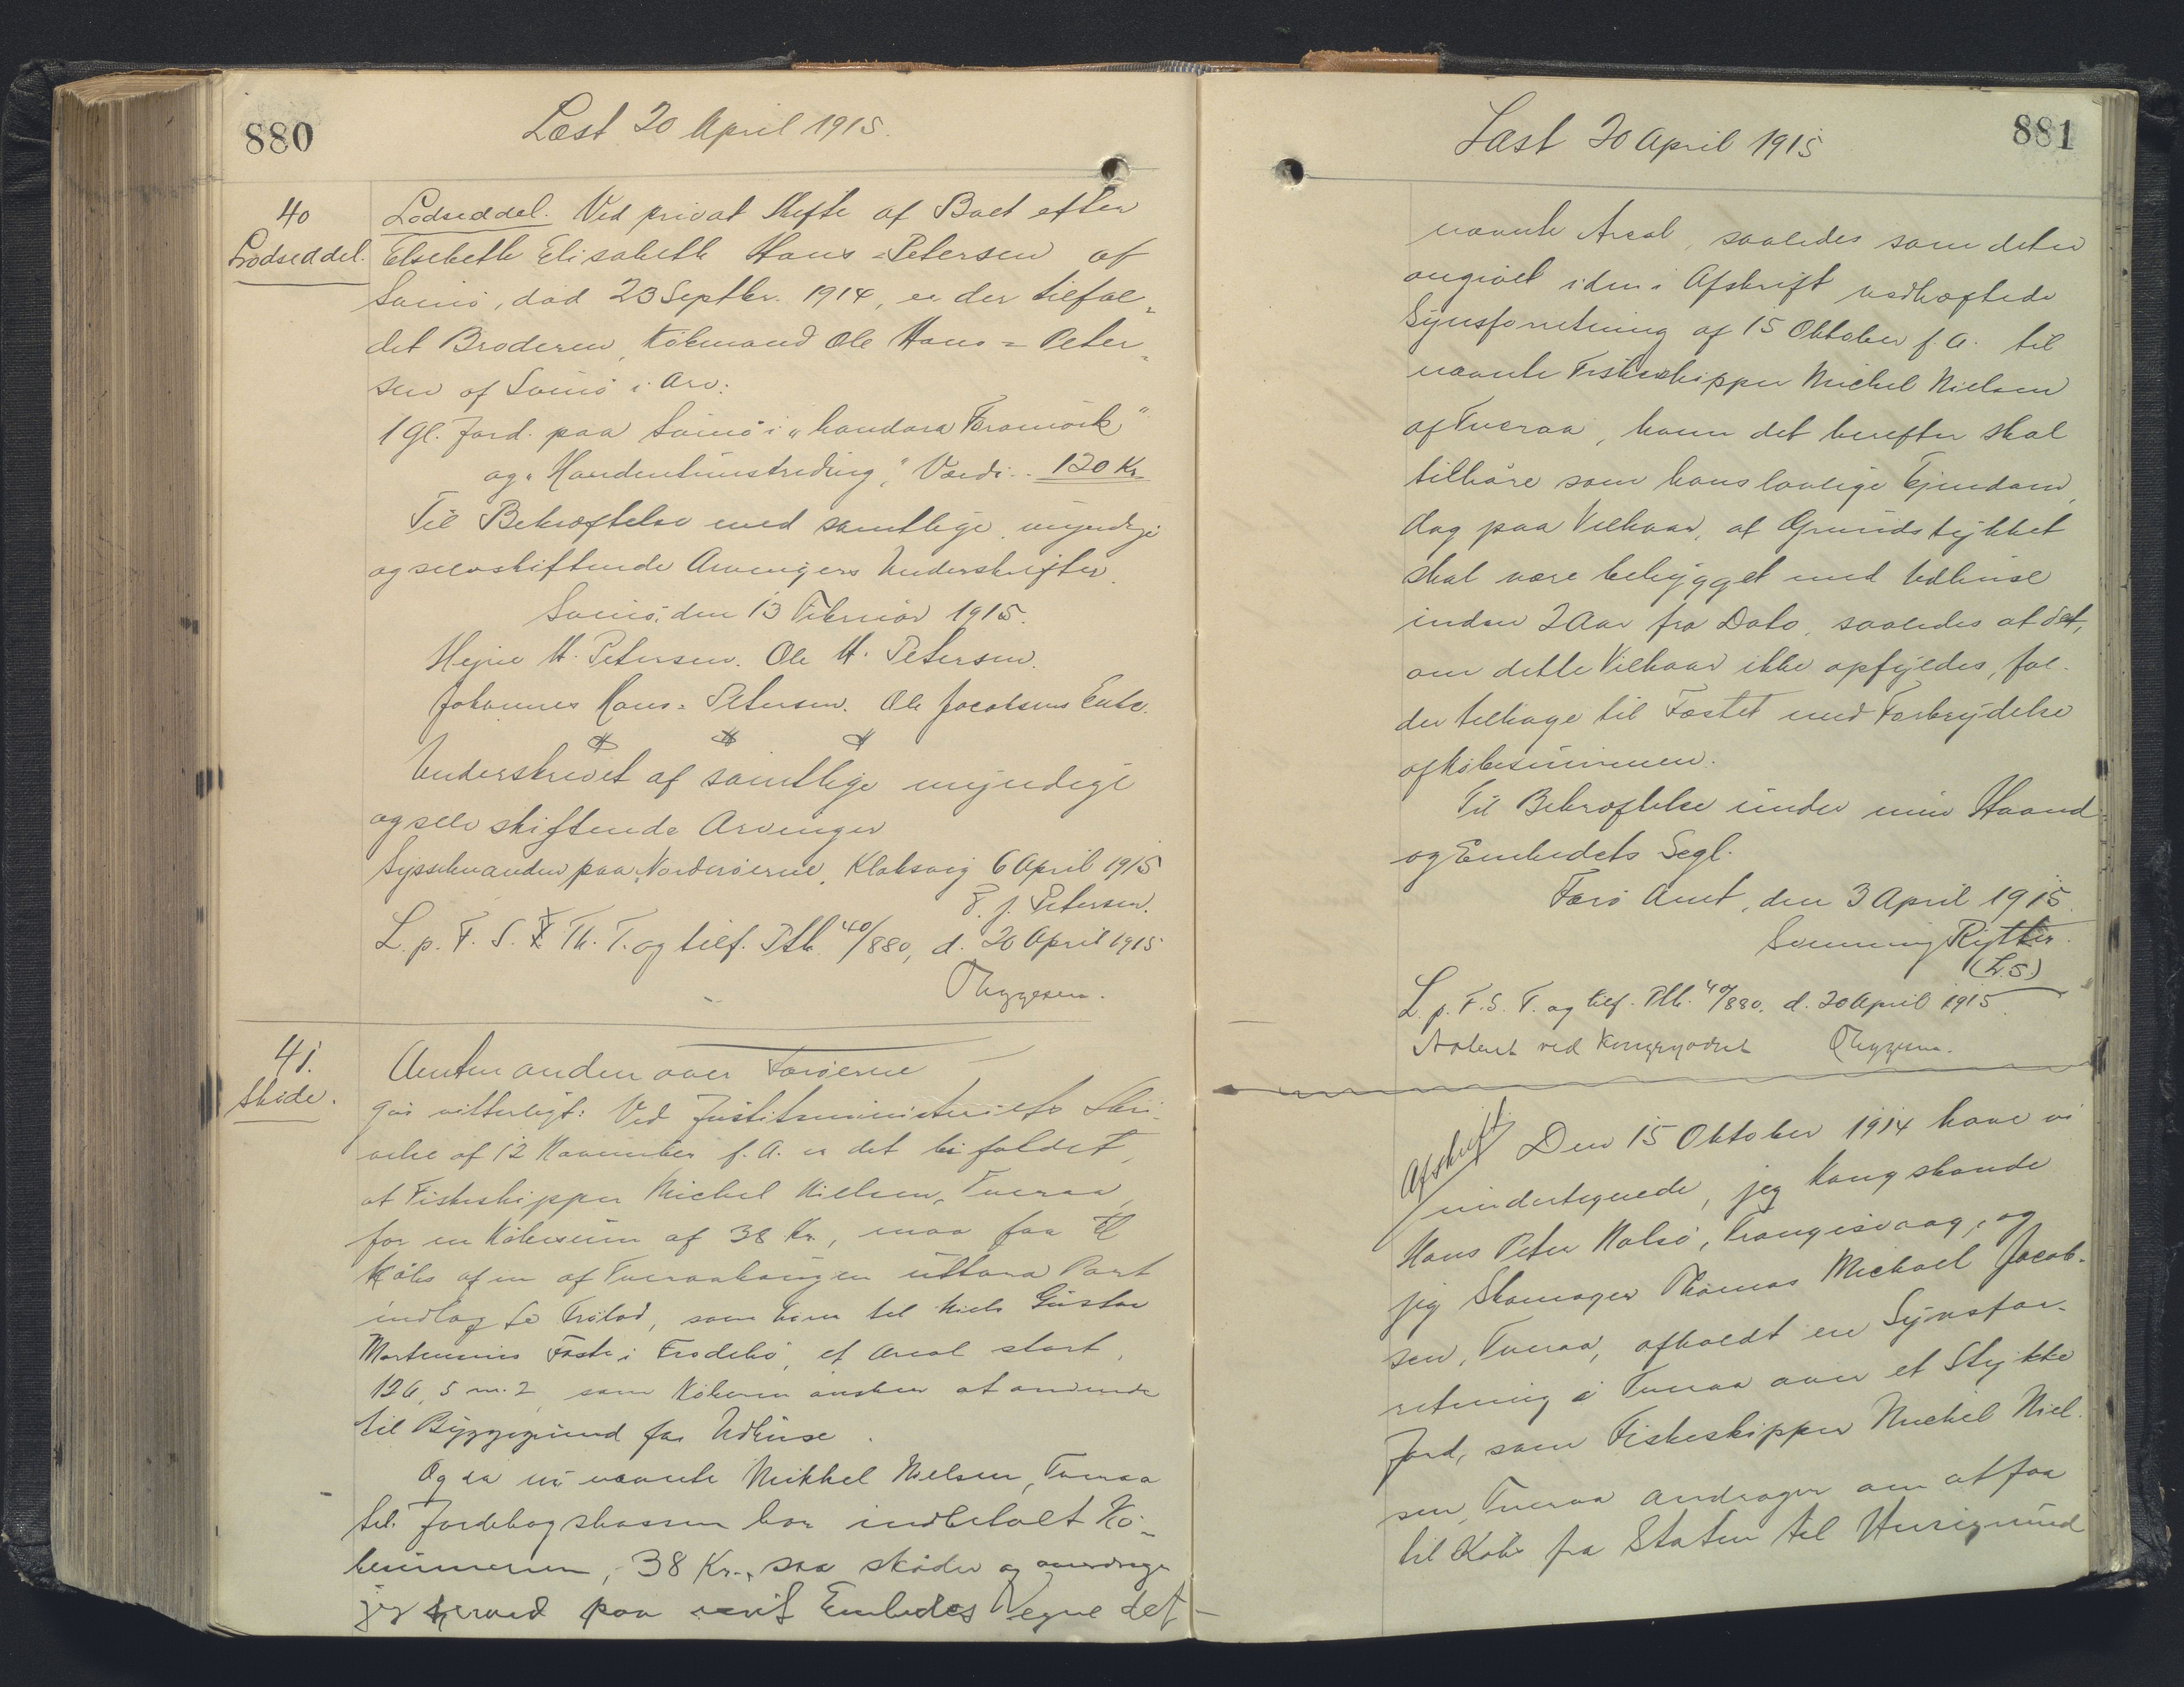 880
Læst 20 April 1915.
40
Lodseddel.
Lodseddel. Ved privat Skifte af Boet efter
Elsebeth Elisabeth Hans-Petersen af
Svinö, död 23 Septbr. 1914, er der tilfal-
det Broderen, Köbmand Ole Hans-Peter-
sen af Svinö i Arv:
1 Gl. Jord paa Svinö i "
og " Værdi .. 120 Kr.
Til Bekræftelse med samtlige myndige
og selvskiftende Arvingers Underskrifter.
Svinö, den 13 Februar 1915.
Hejne H. Petersen. Ole H. Petersen.
Johannes Hans-Petersen. Ole Jacobsens Enke.
Underskrevet af samtlige myndige
og selvskiftende Arvinger
Sysselmanden paa Norderöerne, Klaksvig 6 April 1915
E. J. Petersen.
L. p. F. S. Th. T. og tilf. Ptb. 40/880, d. 20 April 1915
Thygesen.
41.
Sköde.
Amtmanden over Færöerne
gör vitterligt: Ved Justitsministeriets Skri-
velse af 12 November f. A. er det bifaldet,
at Fiskeskipper Michel Nielsen, Tveraa,
for en Köbesum af 38 Kr., maa faa til
Köbs af en af Tveraahaugen uttara Part
indlagt Tröllad, som hörer til Niels Gustav
Mortensens Fæste i Frodebö, et Areal stort
126,5 m.2 som Köberen önsker at anvende
til Byggegrund for Udhuse.
Og da nu nævnte Mikkel Nielsen, Tveraa
til Jordebogskassen har indbetalt Kö-
besummen, 38 Kr., saa sköder og overdrager
jeg herved paa mit Embedes Vegne det
881
Læst 20 April 1915
nævnte Areal, saaledes som det er
angivet i den i Afskrift vedhæftede
Synsforretning af 15 Oktober f. A. til
nævnte Fiskeskipper Michel Nielsen
af Tveraa, hvem det herefter skal
tilhöre som hans lovlige Ejendom,
dog paa Vilkaar, at Grundstykket
skal være bebygget med Udhuse
inden 2 Aar fra Dato, saaledes at det,
om dette Vilkaar ikke opfyldes, fal-
der tilbage til Fæstet med Forbrydelse
af Köbesummen.
Til Bekræftelse under min Haand
og Embedets Segl.
Færö Amt, den 3 April 1915.
Svenning Rytter.
(L.S.)
L. p. F. S. T. og tilf. Ptb. 40/880, d. 20 April 1915.
Noteret ved Kongsgodset Thygesen.
Afskrift
Den 15 Oktober 1914 have vi
undertegnede, jeg Kongsbonde
Hans Peter Nolsö, Trangisvaag, og
jeg Skomager Thomas Michael Jacob-
sen, Tveraa, afholdt en Synsfor-
retning i Tveraa over et Stykke
Jord, som Fiskeskipper Michel Niel-
sen, Tveraa andrager om at faa
til Köbs fra Staten til Husegrund